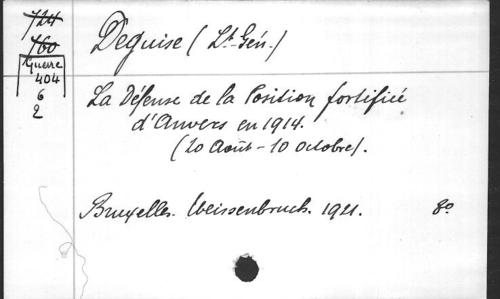 724
760
Guerre
404
6
2
Deguise (Lt-Gén.)
La Défense de la Position fortifiée
d'Anvers en 1914.
(20 Août - 10 octobre).
Bruxelles. Weissenbruch. 1921. 8o